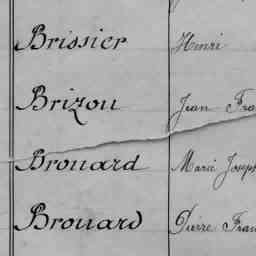 Brissier Henri
Brizou Jean Fra
Brouard Marie Joseph
Brouard Pierre Fran